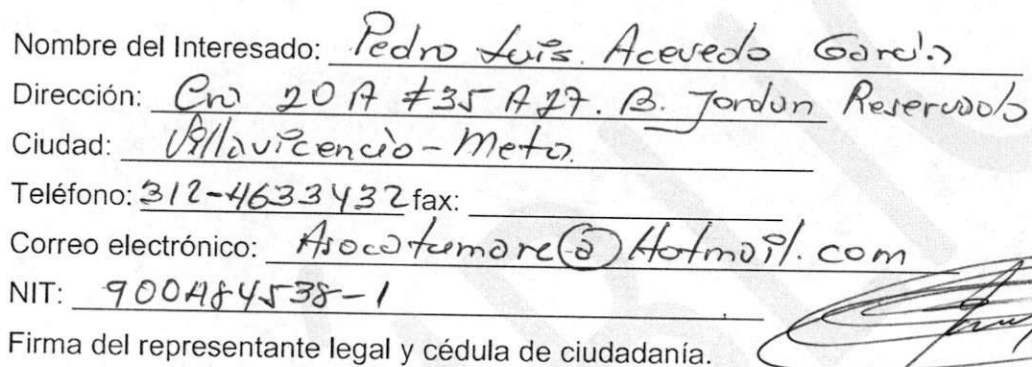 Nombre del Interesado: Pedro Luis. Acevedo García
Dirección: Cra 20 A #35 A 27. B. Jordan Reservado
Ciudad: Villavicencio - Meta.
Teléfono: 312-4633432 fax:
Correo electrónico: Asocatumare@Hotmail.com
NIT:
Firma del representante legal y cédula de ciudadanía.